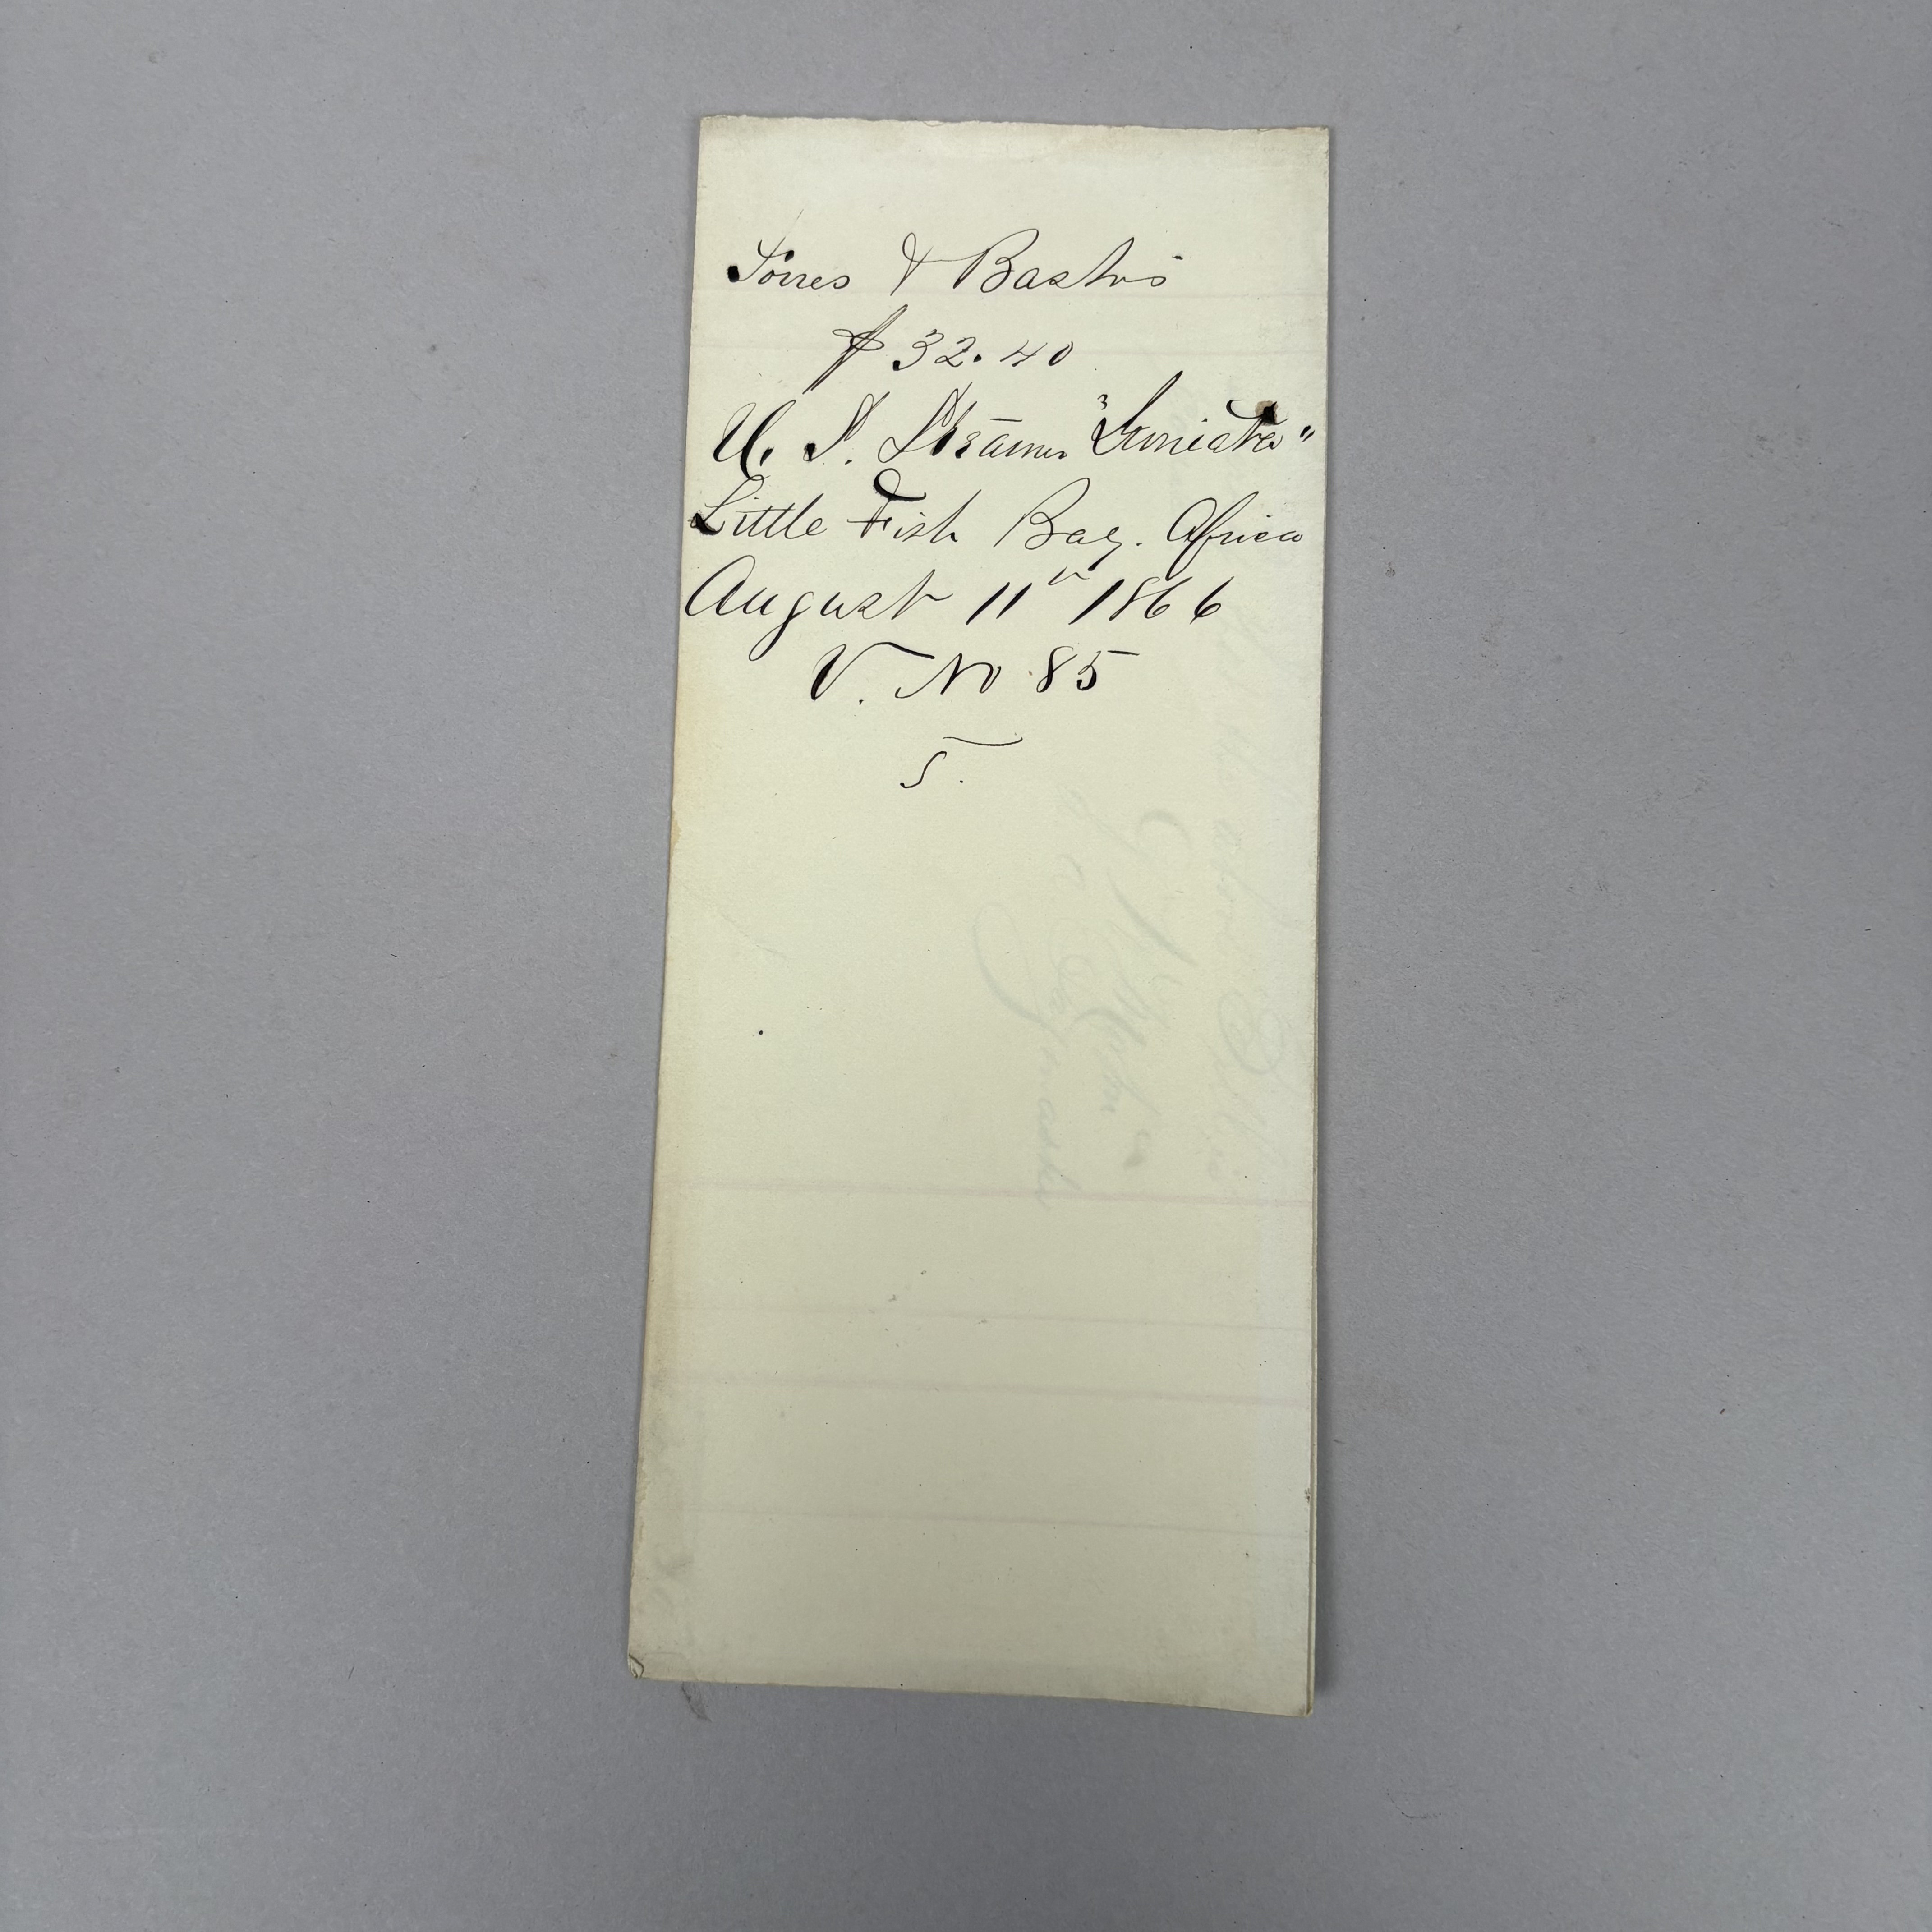 Torres & Bastos
$32.40
U. S. Steamer "Juniata"
Little Fish Bay. Africa
August 11th 1866
V. No 85
5.